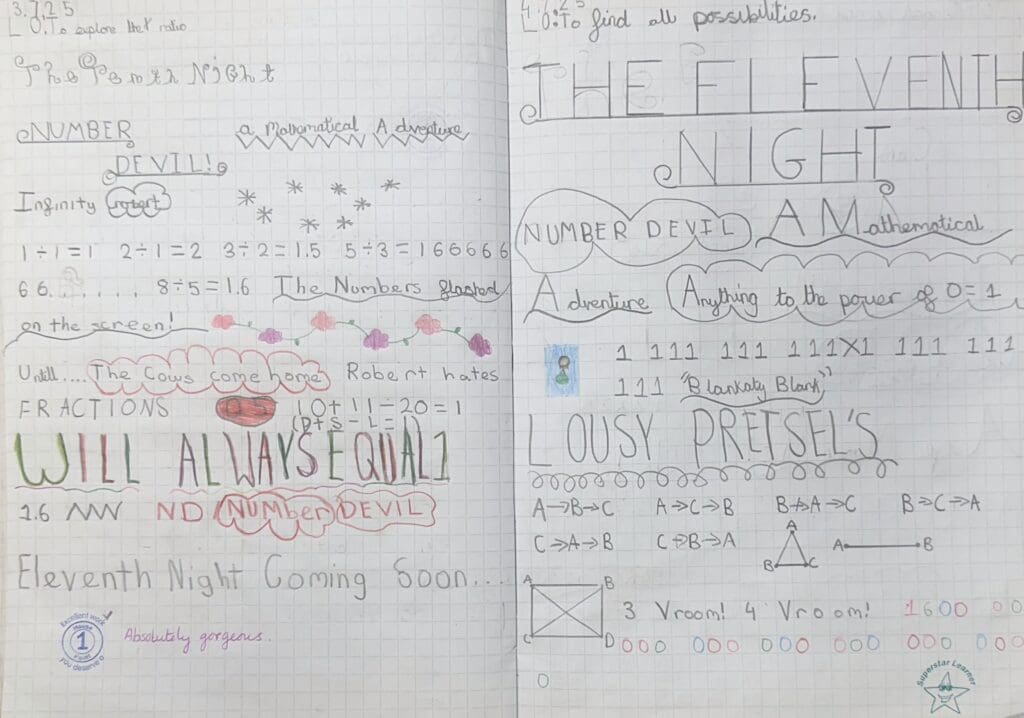 3.7.25
L O:To explore the ratio
The Tenth Night
NUMBER a Mathematical Adventure
DEVIL!
Infinity robert
1÷1=1 2÷1=2 3÷2=1.5 5÷3=166666
66....... 8÷5=1.6 The Numbers floated
on the screen!
Untill.... The Cows come home Robert hates
FRACTIONS 10+11-20=1
(P+S-L=1)
WILL ALWAYS EQUAL1
1.6 ND Number DEVIL
Eleventh Night Coming Soon...
Excellent work
1
you deserve a
Absolutely gorgeous.
L O:To find all possibilities.
THE ELEVENTH
NIGHT
NUMBER DEVIL A Mathematical
Adventure Anything to the power of 0=1
1 111 111 111X1 111 111
111 "Blankaty Blank"
LOUSY PRETSEL'S
A→B→C A→C→B B→A→C B→C→A
C→A→B C→B→A A B C A B
A B
3 Vroom! 4 Vroom! 1600 00
C D 000 000 000 000 000 000
0
Superstar Learner